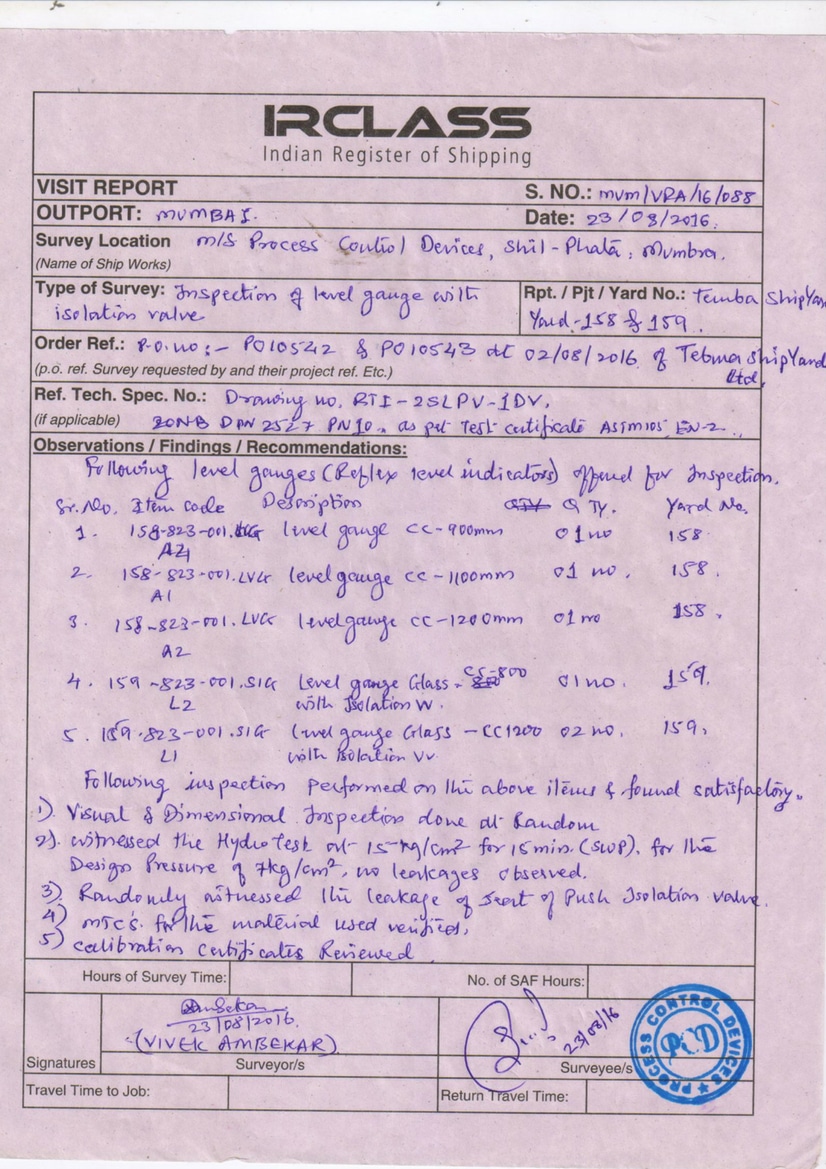 IRCLASS
Indian Register of Shipping
VISIT REPORT
S. NO.: MUM/VRA/16/088
OUTPORT: MUMBAI.
Date: 23/08/2016.
Survey Location M/S Process Control Devices, Shil-Phata, Mumbra.
(Name of Ship Works)
Type of Survey: Inspection of level gauge with
isolation valve
Rpt. / Pjt / Yard No.: Temba ShipYard
Yard-158 & 159.
Order Ref.: P.O.no:- PO10542 & PO10543 dt 02/08/2016 of Tebma ShipYard
Ltd,
(p.o. ref. Survey requested by and their project ref. Etc.)
Ref. Tech. Spec. No.: Drawing no. RTI-2SLPV-1DV,
(if applicable) 20NB DIN 2527 PN10. as per Test certificate EN-2.
Observations / Findings / Recommendations:
Following level gauges (Reflex level indicators) offered for Inspection.
Sr.No. Item code Description QTY. Yard No.
1. 158-823-001. level gauge CC-900mm 01 no 158
2. 158-823-001.LVG level gauge CC-1100mm 01 no. 158.
A1
3. 158-823-001.LVG level gauge CC-1200mm 01 no 158.
A2
4. 159-823-001.SIG Level gauge Glass - 800 01 no. 159.
L2 with Isolation VV.
5. 159-823-001.SIG level gauge Glass - CC1200 02 no. 159.
L1 with isolation VV.
Following inspection performed on the above items & found satisfactory.
1). Visual & Dimensional Inspection done at Random
2). witnessed the HydroTest at 15 kg/cm² for 15 min. (SWP). for the
Design Pressure of 7kg/cm², no leakages observed.
3) Randomly witnessed the leakage of Seat of Push Isolation valve.
4) MTC's for the material used verified.
5) calibration certificates Reviewed
Hours of Survey Time:
No. of SAF Hours:
Ambekar
23/08/2016.
(VIVEK AMBEKAR)
23/08/16
PROCESS CONTROL DEVICES
PCD
Signatures
Surveyor/s
Surveyee/s
Travel Time to Job:
Return Travel Time: